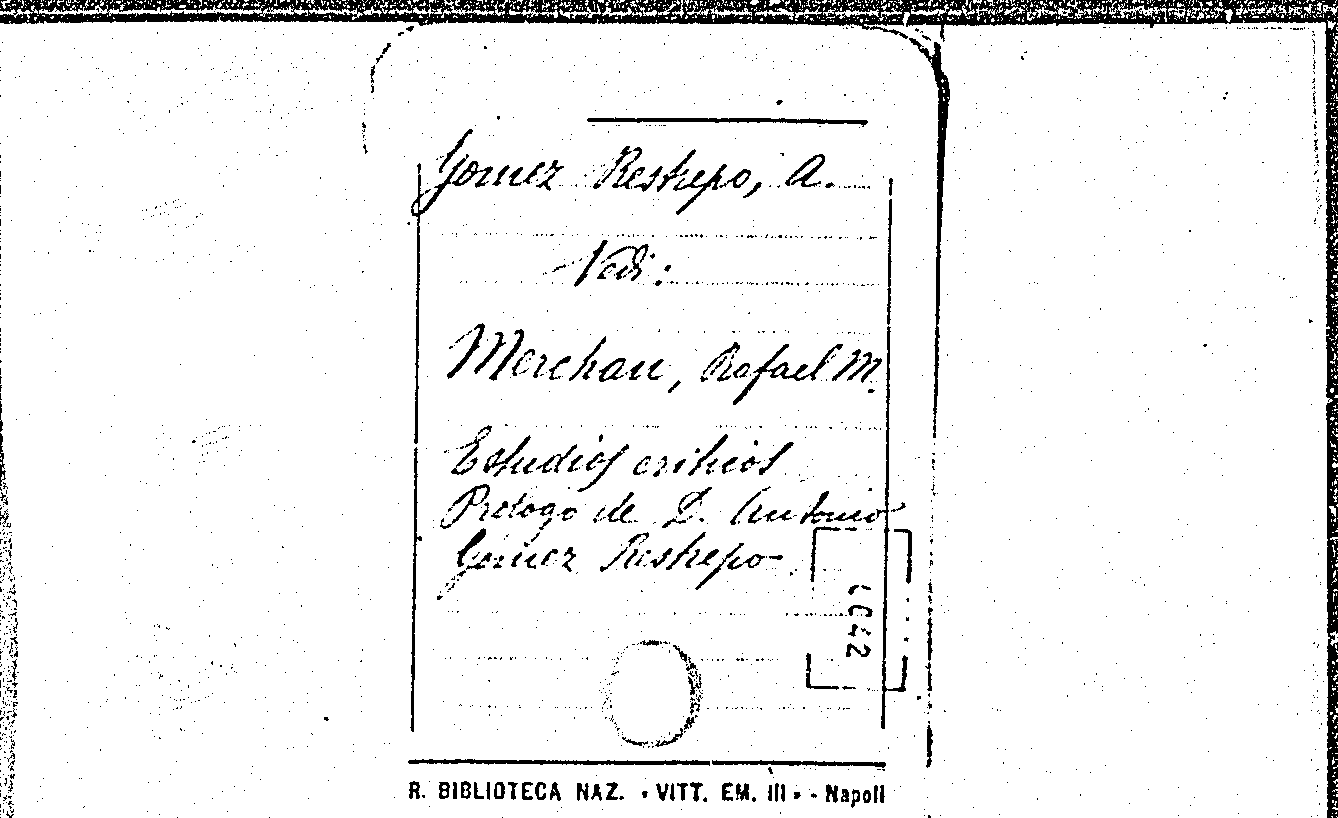 Gomez Restrepo, A.
Vedi:
Merchan, Rafael M.
Estudios criticos
Prologo de D. Antonio
Gomez Restrepo
R. BIBLIOTECA NAZ. « VITT. EM. III » - Napoli